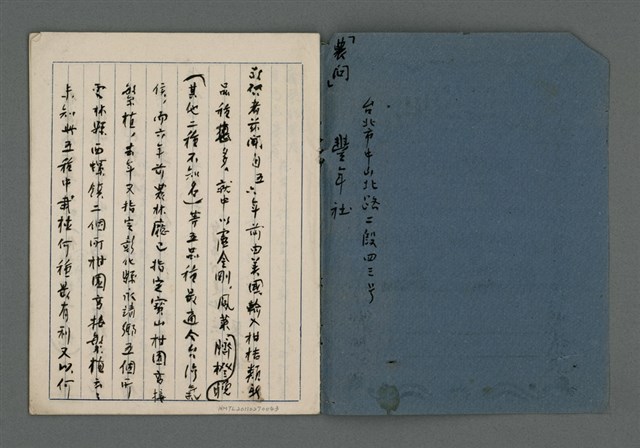 台北市中山北路二段四三号
「農問」 豐年社
敬啓者茲聞自五六年前由美國輸入柑桔類新
品種多,就中以盧金剛,鳳萊(臍橙)
(其他二種不知名)等五品種最適合台湾氣
候,而六年前農林廳已指定寶山柑園高接
繁植,去年又指定彰化縣永靖鄉五個所
雲林縣西螺鎮二個所柑園高接繁植云々
未知此五種中栽植何種最有利又以何